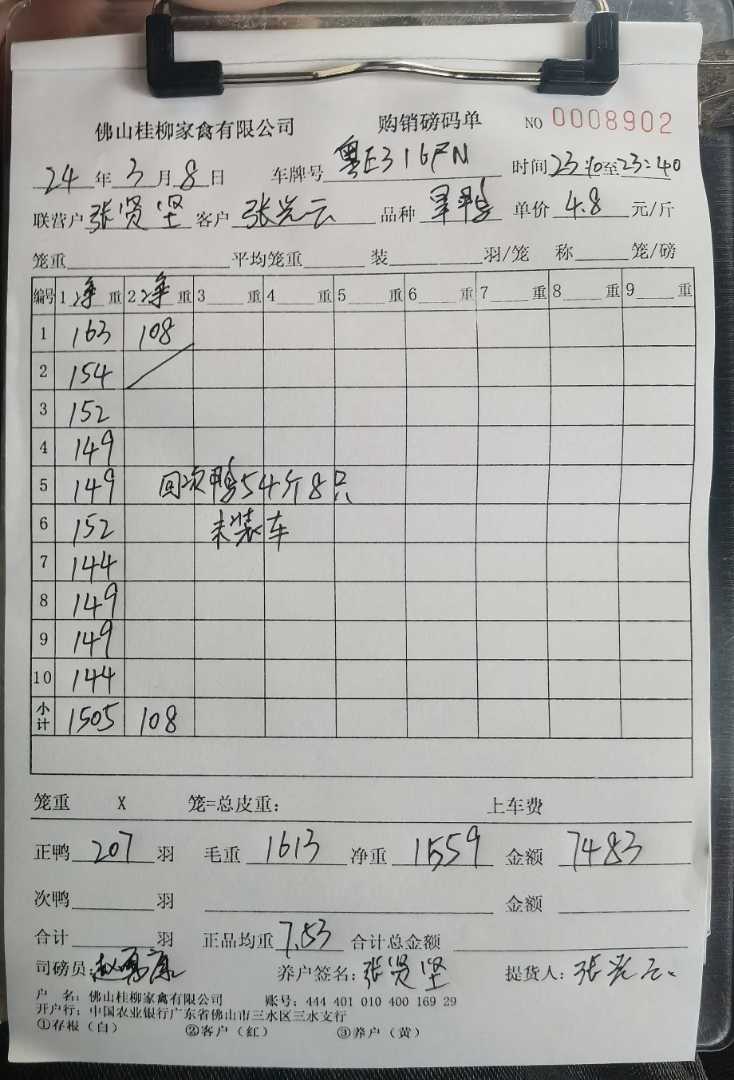 佛山桂柳家禽有限公司 购销磅码单 NO 0008902
24 年 3 月 8 日 车牌号 粤E316FN 时间 23:10 至 23:40
联营户 张贤坚 客户 张光云 品种 旱鸭 单价 4.8 元/斤
笼重 平均笼重 装 羽/笼 称 笼/磅
编号 1 净 重 2 净 重 3 重 4 重 5 重 6 重 7 重 8 重 9 重
1 163 108
2 154
3 152
4 149
5 149 回次鸭54斤8只
6 152 未装车
7 144
8 149
9 149
10 144
小计 1505 108
笼重 X 笼=总皮重: 上车费
正鸭 207 羽 毛重 1613 净重 1559 金额 7483
次鸭 羽 金额
合计 羽 正品均重 7.53 合计总金额
司磅员: 养户签名: 张贤坚 提货人: 张光云
户 名: 佛山桂柳家禽有限公司 账号: 444 401 010 400 169 29
开户行: 中国农业银行广东省佛山市三水区三水支行
①存根(白) ②客户(红) ③养户(黄)